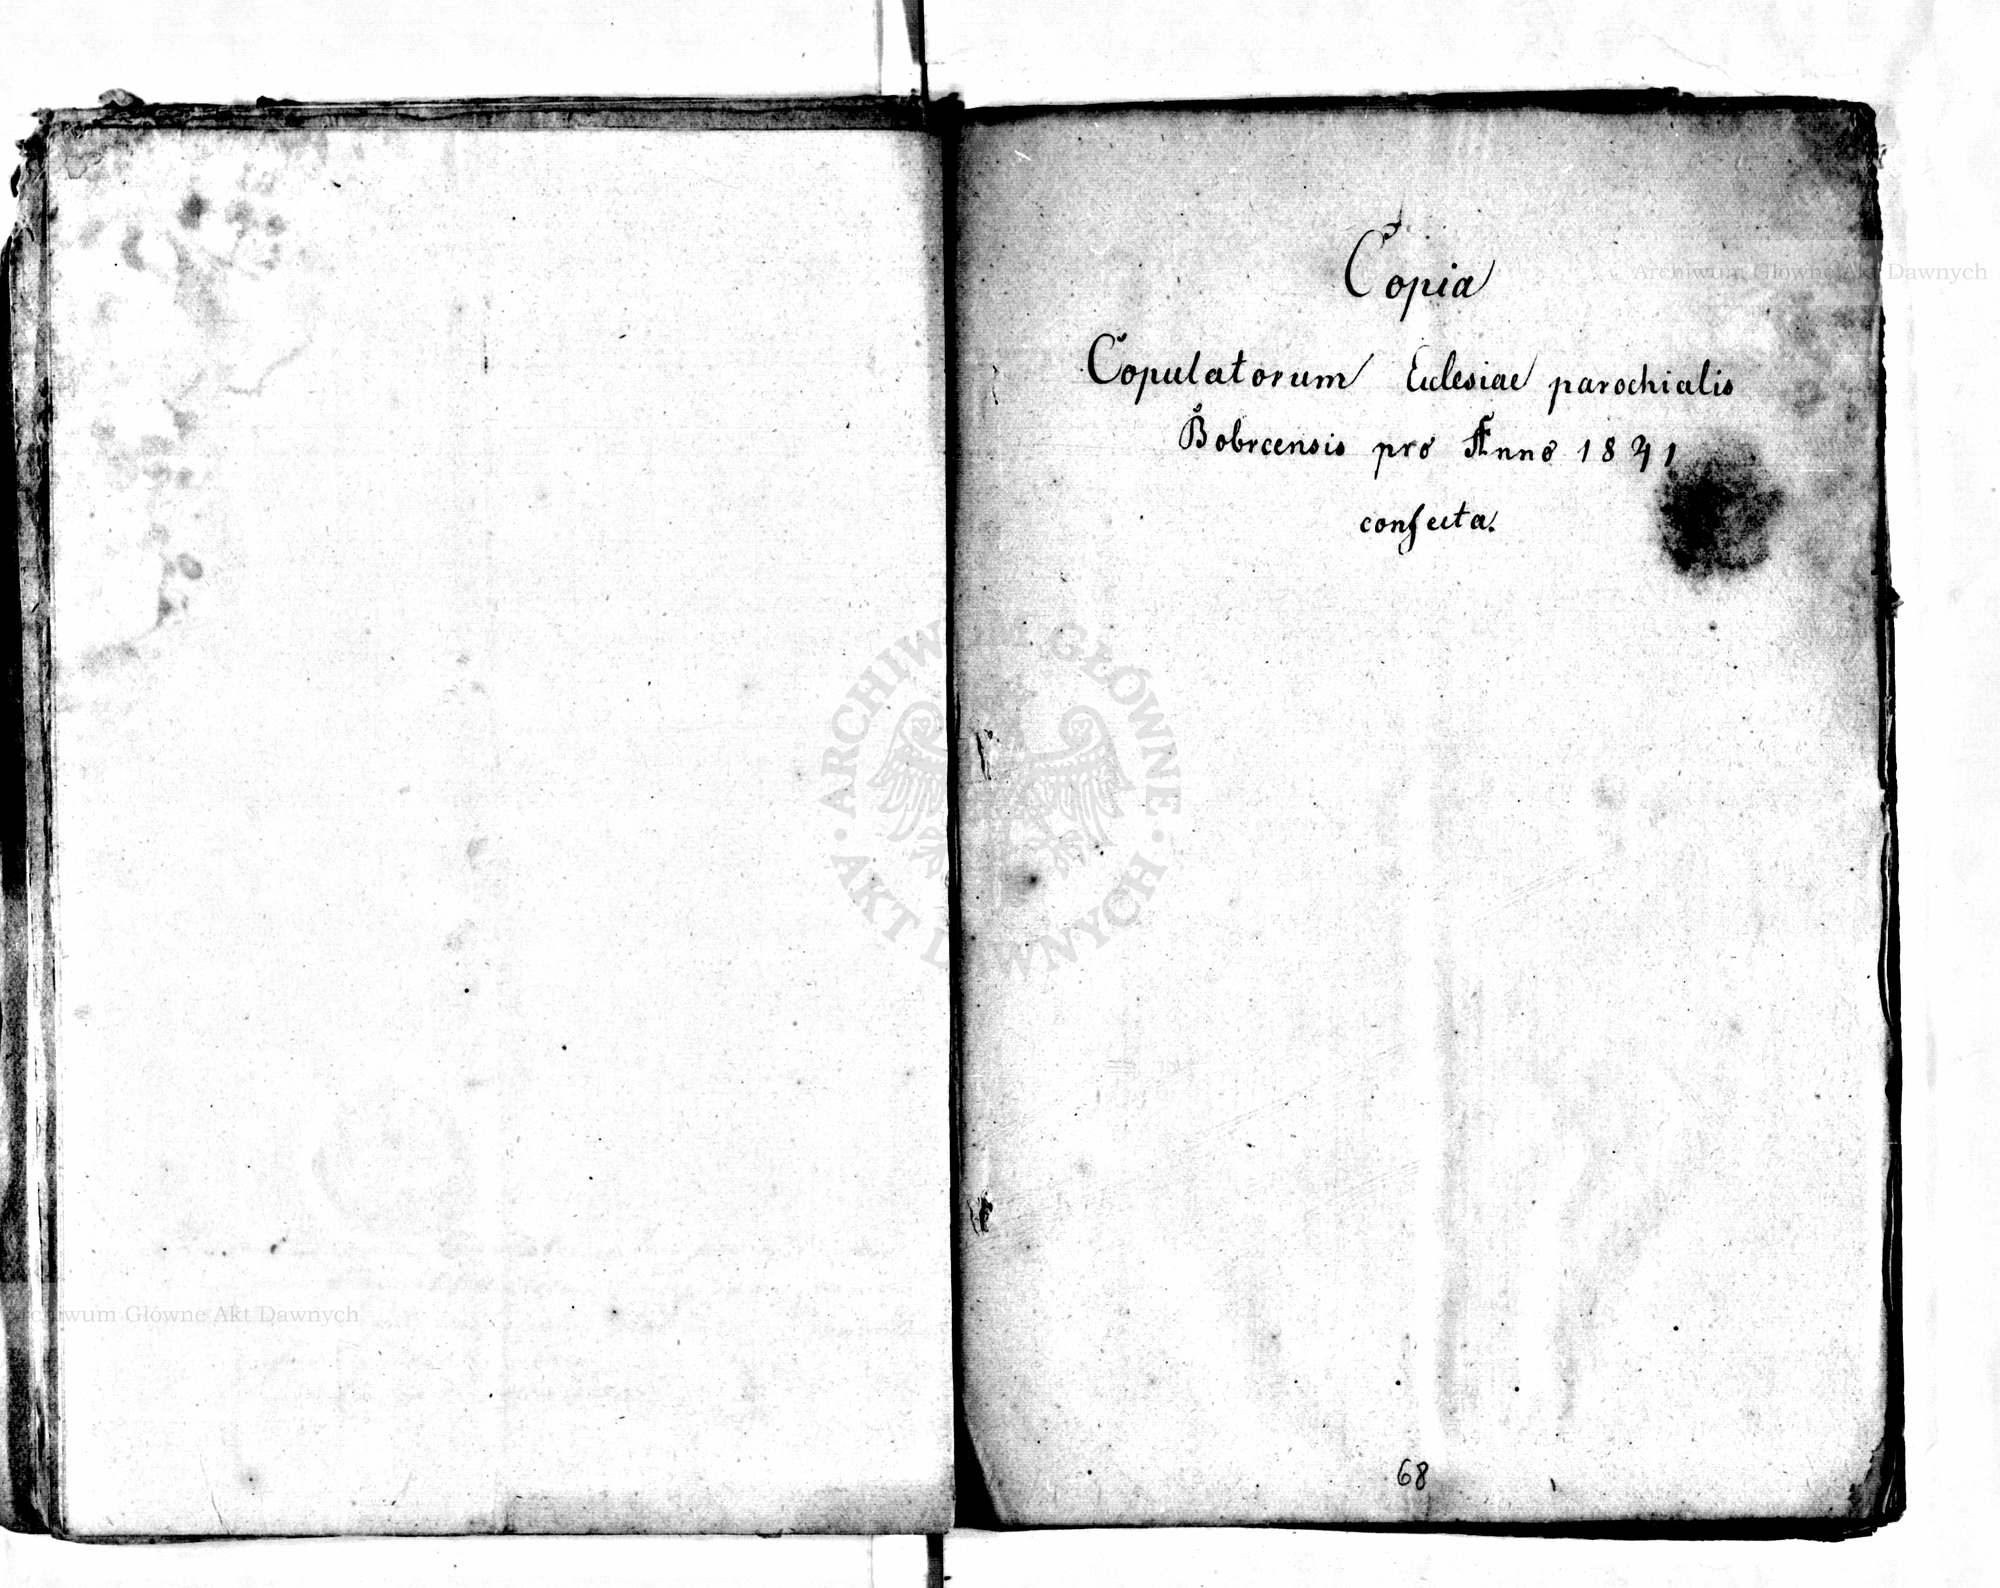 Copia
Copulatorum Eclesiae parochialis
Bobrcensis pro Anno 1841
confecta.
68
Archiwum Główne Akt Dawnych
ARCHIWUM GŁÓWNE
AKT DAWNYCH
Archiwum Główne Akt Dawnych